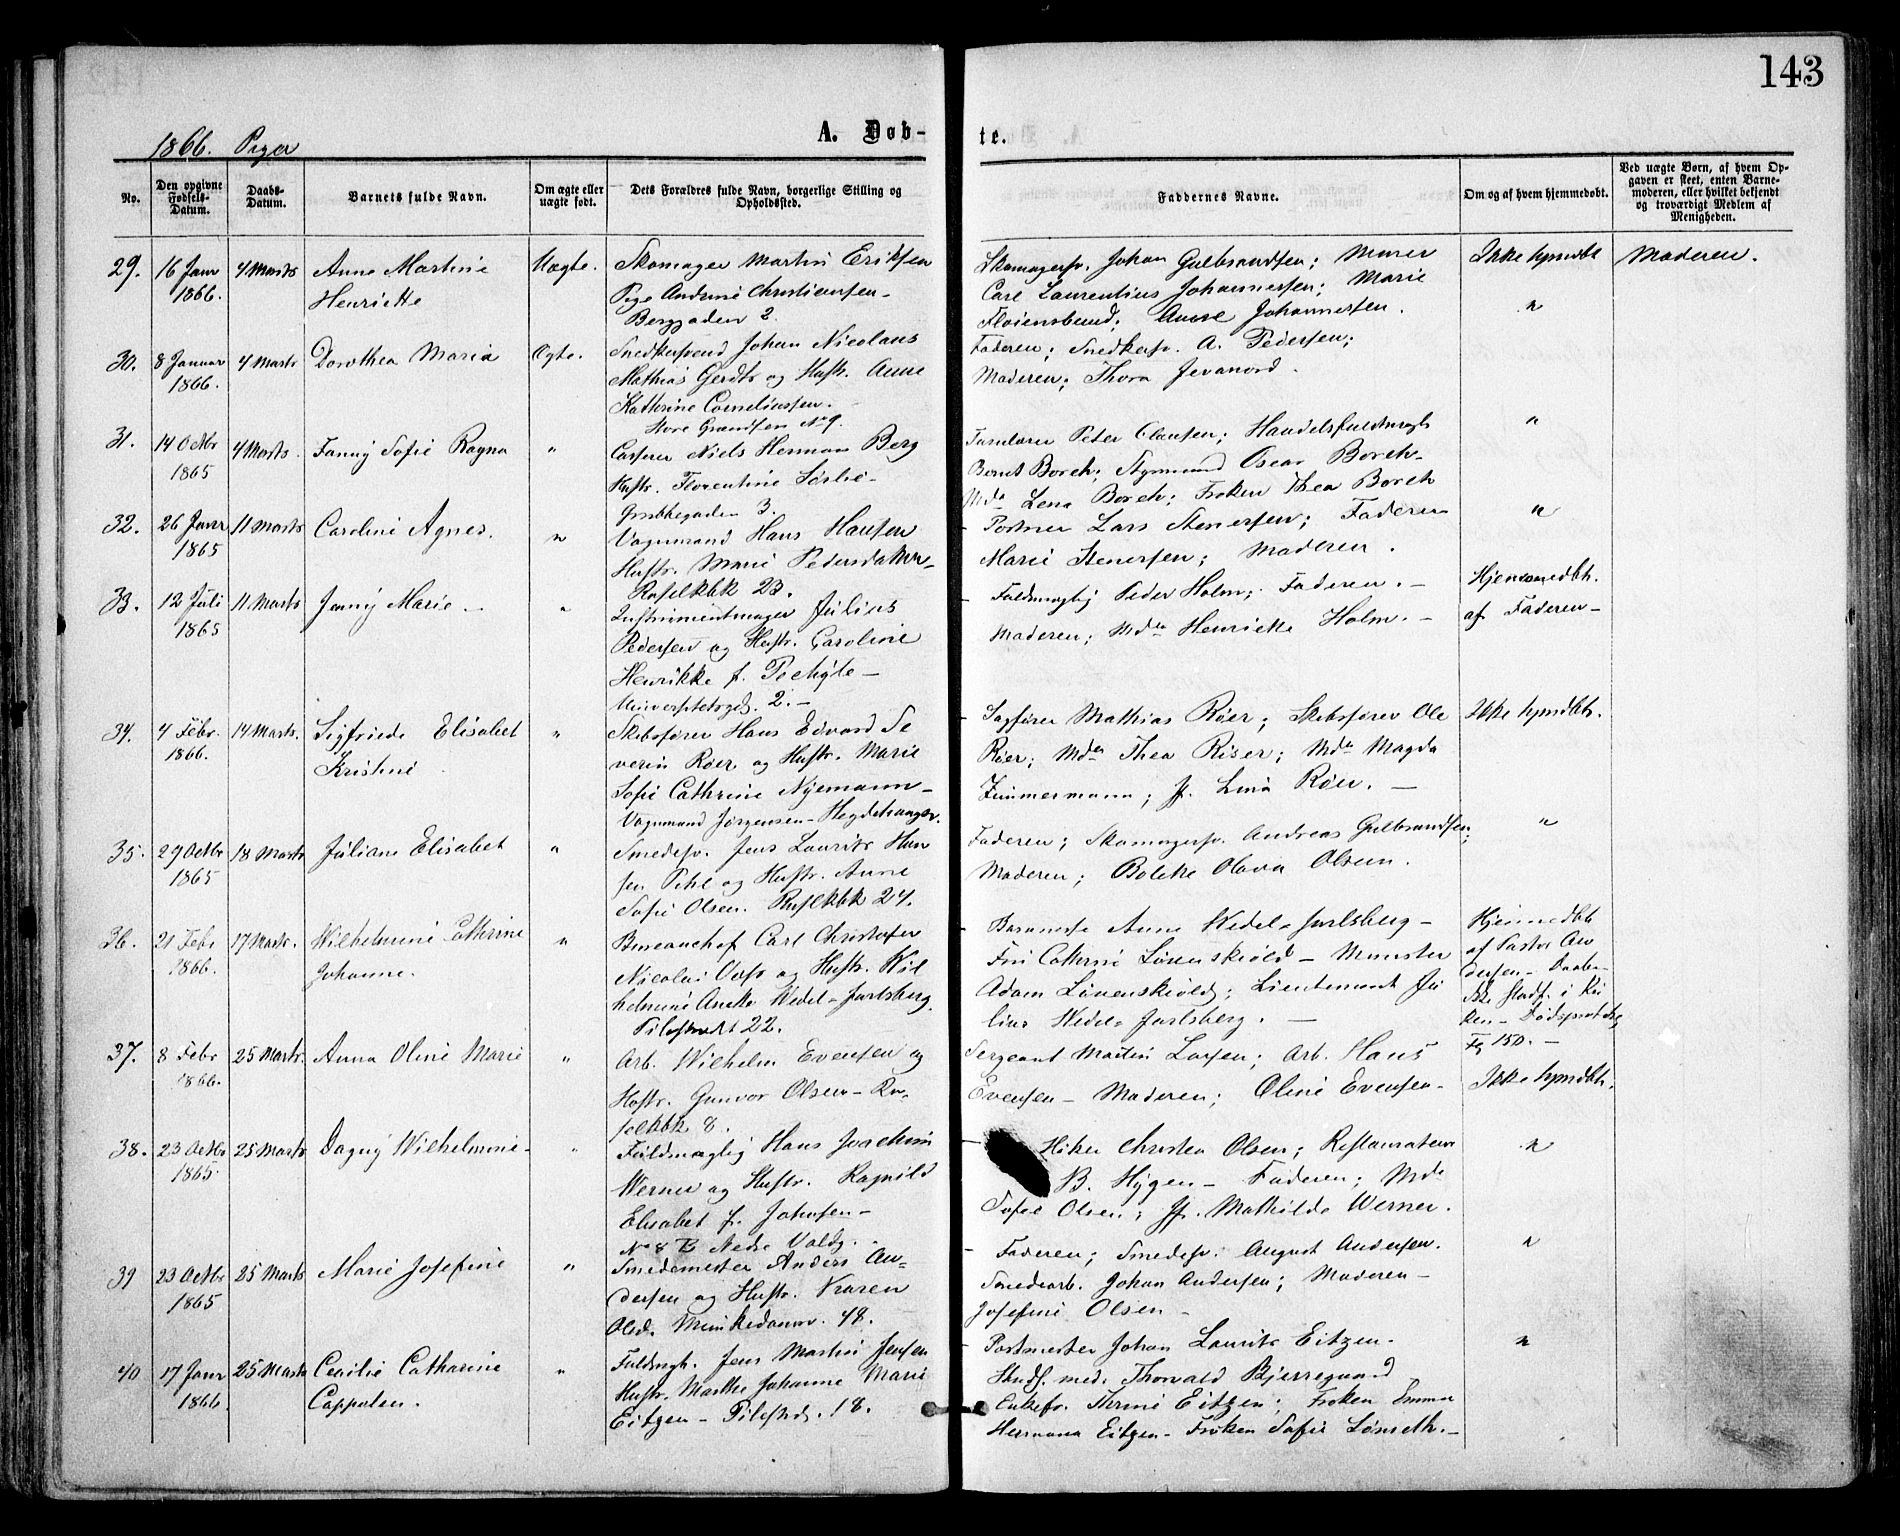 143
1866. Piger
A. Døb- te.
No.
Den opgivne Fødsels-Datum.
Daabs-Datum.
Barnets fulde Navn.
Om ægte eller uægte født.
Dets Forældres fulde Navn, borgerlige Stilling og Opholdssted.
Faddernes Navne.
Om og af hvem hjemmedøbt.
Ved uægte Børn, af hvem Opgaven er skeet, enten Barnemoderen, eller hvilket bekjendt og troværdigt Medlem af Menigheden.
29. 16 Janr 4 Marts Anne Martine Uægte. Skomager Martin Eriksen
1866. Henriette Pige Andrine Christiansen-
Berggaden 2.
Skomagersv. Johan Gulbrandsen; Murer Ikke hjmdbt Moderen.
Carl Laurentius Johannersen; Marie
Anne Johannersen. "
30. 8 Januar 4 Marts Dorothea Maria Ægte. Snedkersvend Johan Nicolaus
1866. Mathias Gerdts og Hustr. Anne
Kathrine Corneliussen.
Store Grændsen No 9.
Faderen; Snedkersv. A. Pedersen;
Moderen; Thora Jevanord.
31. 14 Octbr 4 Marts. Fanny Sofie Ragna " Casserer Niels Herman Berg
1865 Hustr. Florentine Sørbø-
Grubbegaden 3.
Peter Clausen; Handelsfuldmægt "
Bernt Borch; Oscar Borch-
Mda Lena Borch; Frøken Thea Borch
32. 26 Janr 11 Marts Caroline Agnes. " Vognmand Hans Hansen
1865 Hustr. Marie Pedersdatter-
Rosflkbk 23.
- Portner Lars Stenersen; Faderen "
Marie Stenersen; Moderen.
33. 12 Juli 11 Marts Jenny Marie - " Instrumentmager Julius
1865 Pedersen og Hustr. Caroline
Henrikke f. Pechyle-
Universitetsgd. 2.-
- Fuldmægtig Peder Holm; Faderen. - Hjemmedbt.
Moderen; Mda Henrikke Holm. - af Faderen-
34. 4 Febr. 14 Marts. Sigfriede Elisabet " Skibsfører Hans Edvard Se
1866. Kristine verin Røer og Hustr. Marie
Sofie Cathrine Nyemann-
Vognmand Jørgensen- Hegdehaugen.
- Sagfører Mathias Røer; Skibsfører Ole Ikke hjmdbt.
Røer; Mda Thea Riser; Mda Magda
Zimmermann; Jf. Lina Røer. -
35. 29 Octbr 18 Marts Juliane Elisabet " Smedesv. Jens Laurits Han
1865 sen Pihl og Hustr. Anne
Sofie Olsen. Ruflkbk 24.
Faderen; Skomagersv. Andreas Gulbrandsen; "
Moderen; Bolette Olava Olsen.
36. 21 Febr 17 Marts. Wilhelmine Cathrine " Bureauchef Carl Christofer
1866. Johanne. Nicolai og Hustr. Wil
helmine Wedel-Jarlsberg.
Pilestrædt 22.
- Baronesse Anne Wedel-Jarlsberg- Hjemmedbt
Frü Cathrine Løvenskiold - Minister af Pastor An
Adam Løvenskiold; Lieutenant Ju dersen- Daaben
lius Wedel-Jarlsberg. - ikke Stadf. i Kir
ken- Dødsprot.
Fg 150. -
37. 8 Febr 25 Marts. Anna Oline Marie " Arb. Wilhelm Evensen og
1866. Hustr. Gunvor Olsen - Ru-
selkbk 8.
Sergeant Martin Larsen; Arb. Hans
Evensen - Moderen; Oline Evensen- Ikke hjmdbt.
38. 23 Octbr 25 Marts Dagny Wilhelmine- " Fuldmægtig Hans Joachim
1865 Werner og Hustr. Ragnild
Elisabet f. Johnsen-
No 8 B Nedre Voldg.
- Høker Christen Olsen; Restaurateur "
B. Hygen - Faderen; Mda
Sofie Olsen; Jf. Mathilde Werner.
39 23 Octbr 25 Marts Marie Josefine " Smedemester Anders An-
1865 dersen og Hustr. Karen
Olsd. Munkedamsv. 48.
- Faderen; Smedesv. August Andersen. "
Smedearb. Johan Andersen; Moderen-
Josefine Olsen-
40 17 Janr 25 Marts Cecilie Catharine " Fuldmgt. Jens Martin Jensen
1866. Cappelen. Hustr. Marthe Johanne Marie
Eitzen - Pilestrd. 18.
- Postmester Johan Laurits Eitzen- "
Stud. med. Thorvald Bjerregaard
Enkefr. Eitzen; Frøken Emma
Hermana Eitzen- Frøken Sofie